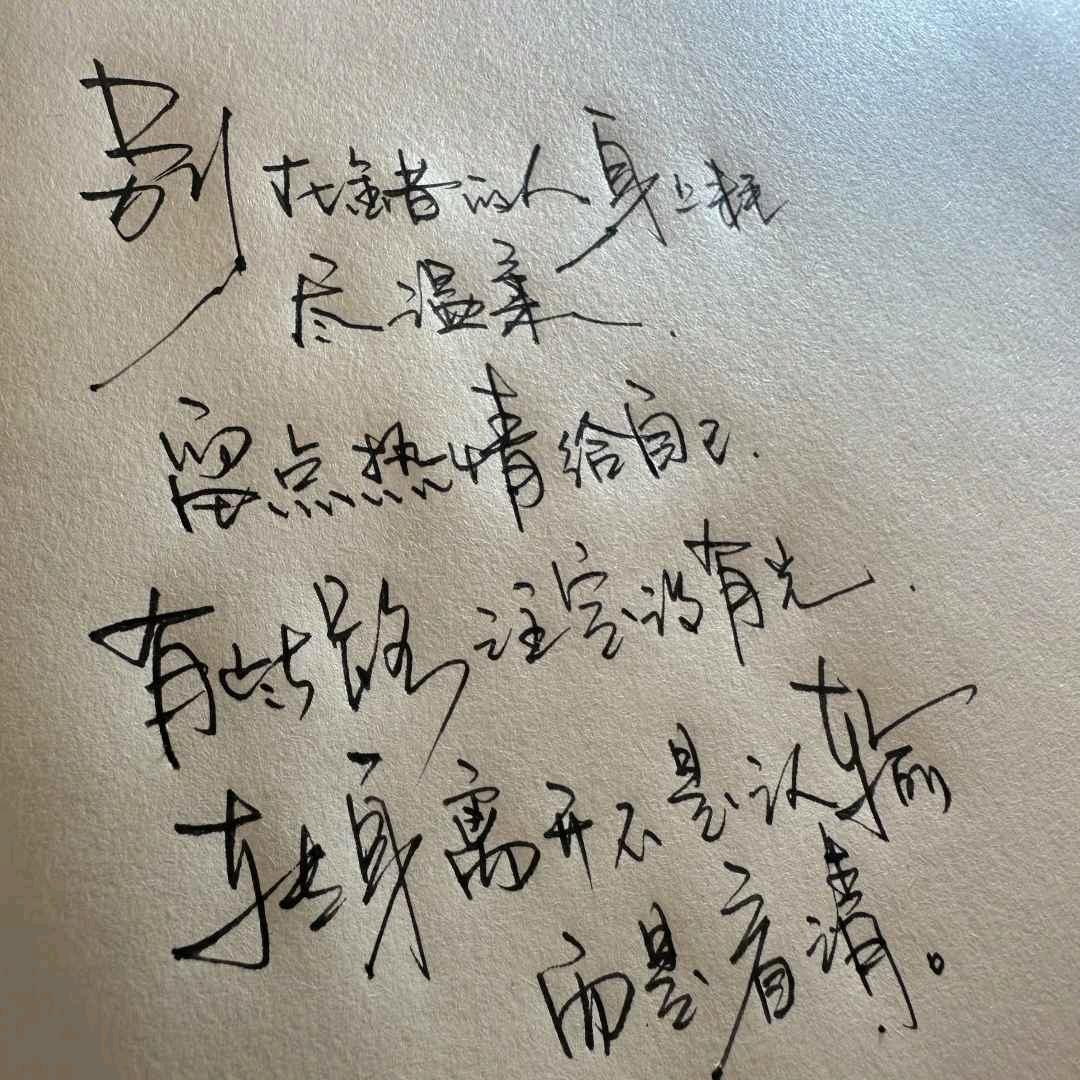 别在错的人身上耗
尽温柔.
留点热情给自己.
有些路注定没有光.
转身离开不是认输
而是看清。